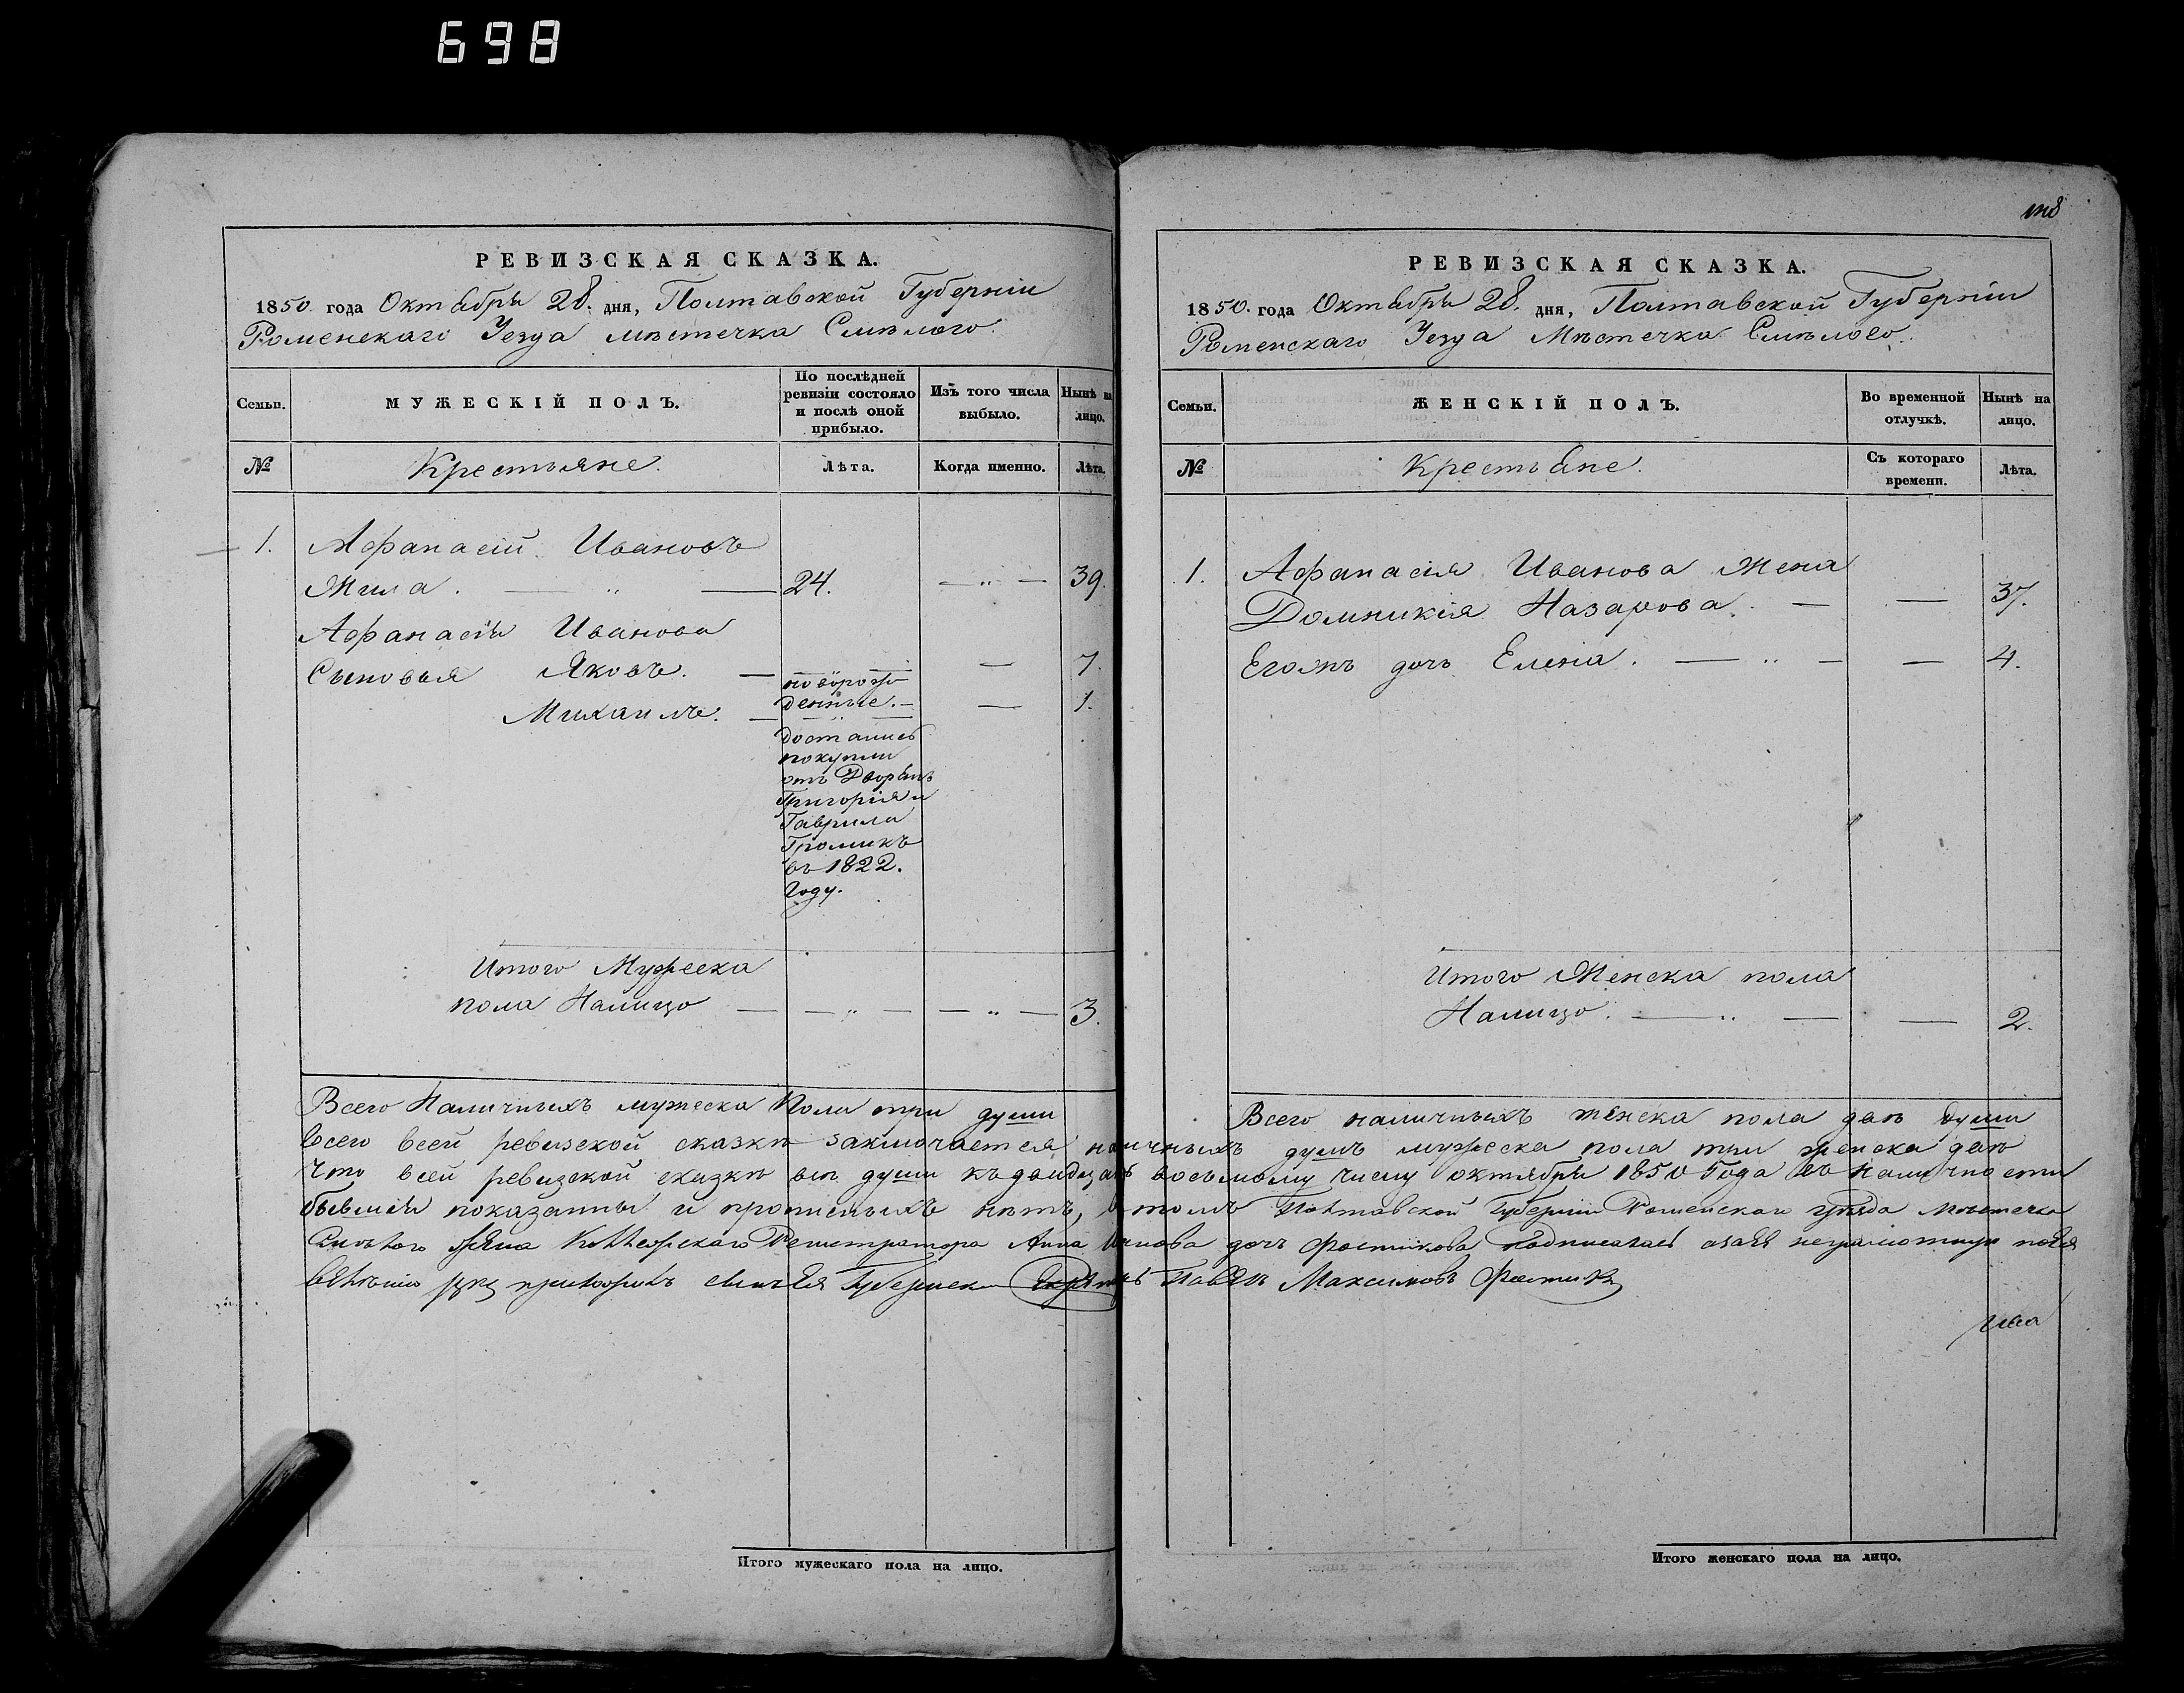 698
РЕВИЗСКАЯ СКАЗКА.
1850 года Октября 28. дня, Полтавской Губерніи
Роменскаго Уезда мѣстечка Смѣлого.
Семьи.
МУЖЕСКІЙ ПОЛЪ.
По послѣдней ревизіи состояло и послѣ оной прибыло.
Изъ того числа выбыло.
Нынѣ на лицо.
№
Крестьяне.
Лѣта.
Когда именно.
Лѣта.
1. Афанасій Ивановъ
24. — „ — 39.
Афанасія Иванова
Сыновья Яковъ. — — 7.
новорож
денные. —
Михаилъ. — — 1.
Достались
покупки
отъ Дворянъ
Григорія и
Гаврила
Громикъ
въ 1822.
Году.
Итого Мужеска
пола Налицо — — „ — — „ — 3.
Всего Наличныхъ мужеска Пола три души
Итого мужескаго пола на лицо.
РЕВИЗСКАЯ СКАЗКА.
1850. года Октября 28. дня, Полтавской Губерніи
Роменскаго Уезда Мѣстечка Смѣлого.
Семьи.
ЖЕНСКІЙ ПОЛЪ.
Во временной отлучкѣ.
Нынѣ на лицо.
№
Крестьяне.
Съ котораго времени.
Лѣта.
1. Афанасія Иванова Жена
Домникія Назарова. — — 37.
Егожъ дочь Елена. — „ — — 4.
Итого Женска пола
Налицо. — „ — — 2.
Всего наличныхъ женска пола двѣ души
всего всей ревизской сказкѣ заключается наличныхъ душъ мужеска пола три женска двѣ
Что всей ревизской сказкѣ всѣ души къ двадцать восьмому числу октября 1850 Года въ наличности
бывшія показанны и прописныхъ нѣтъ, втомъ Полтавской Губерніи Роменскаго уѣзда мѣстечка
Смѣлого жена Коллежскаго Регистратора Анна дочь Фостикова подписалась азаея неграмотную поея
велѣнію руку приложилъ Губернски Секретарь Павелъ Максимовъ Фостикъ
Итого женскаго пола на лицо.